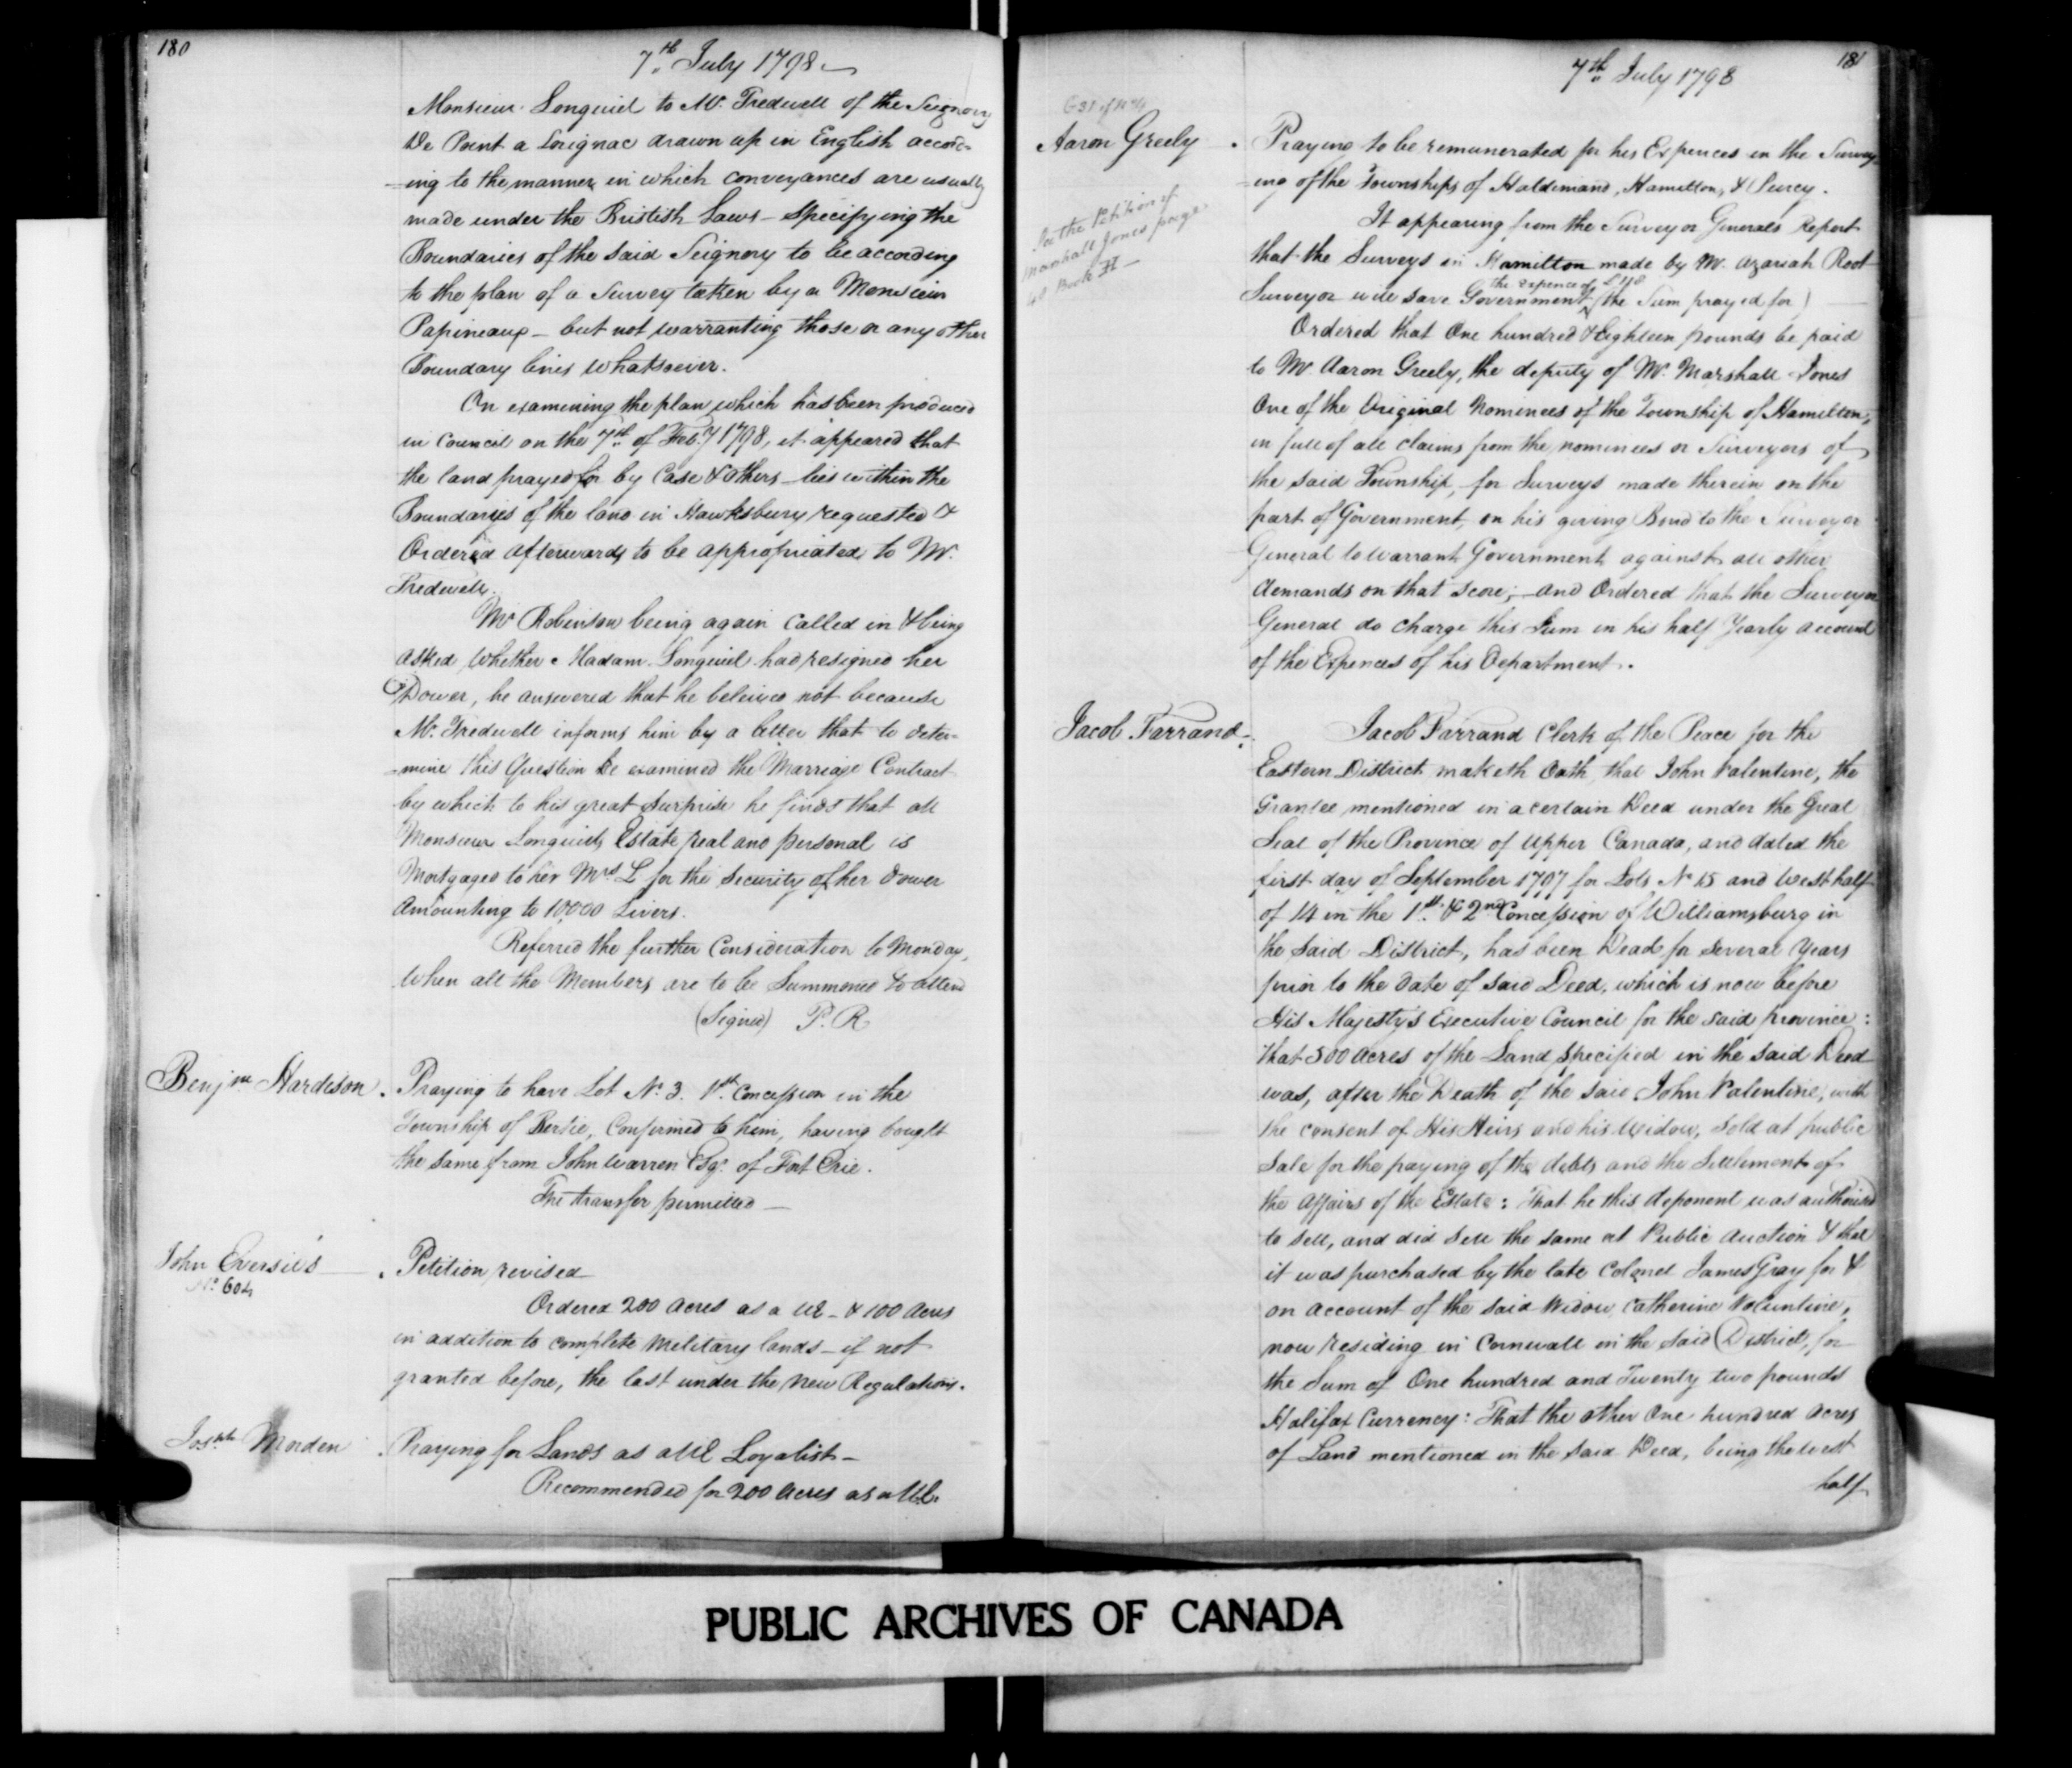 180
7th July 1798
Monsieur Longuiel to Mr. Tredwell of the Seignory
De Point a Lorignac drawn up in English accord-
-ing to the manner in which conveyances are usually
made under the British Laws - specifying the
Boundaries of the said Seignory to be according
to the plan of a Survey taken by a Monsieur
Papineaux - but not warranting those or any other
Boundary lines whatsoever.
On examining the plan which has been produced
in Council on the 7th of Feby 1798, it appeared that
the land prayed for by Case & others lies within the
Boundaries of the land in Hawksbury requested &
Ordered afterwards to be appropriated to Mr.
Tredwell.
Mr Robinson being again called in & being
asked whether Madam Longuiel had resigned her
Dower, he answered that he beleives not because
Mr. Tredwell informs him by a letter that to deter-
-mine this Question he examined the Marriage Contract
by which to his great surprise he finds that all
Monsieur Longuiels Estate real and personal is
Mortgaged to her Mrs L for the security of her dower
Amounting to 10,000 Livers.
Referred the further Consideration to Monday,
When all the Members are to be Summoned to attend
(Signed) P. R
Benjmn Hardison. Praying to have Lot No. 3. 1st. Concession in the
Township of Bertie, Confirmed to him, having bought
the same from John Warren Esqr. of Fort Erie.
The transfer permitted
John
No. 604
Petition revised
Ordered 200 Acres as a UE - & 100 Acres
in addition to complete Military lands - if not
granted before, the last under the New Regulations.
Josph Morden. Praying for Lands as a UE Loyalist -
Recommended for 200 Acres as a UE.
181
7th July 1798
Aaron Greely. Praying to be remunerated for his Expences in the Survey
-ing of the Townships of Haldimand, Hamilton, & Percy.
For the Petition of
Marshall Jones page
Book H -
It appearing from the Surveyor Generals Report
that the Surveys in Hamilton made by Mr. Azariah Root
the expence of £118
Surveyor will save Government (the Sum prayed for)
Ordered that One hundred & Eighteen pounds be paid
to Mr Aaron Greely, the deputy of Mr. Marshall Jones
One of the Original Nominees of the Township of Hamilton,
in full of all claims from the nominees or Surveyors of
the said Township, for Surveys made therein on the
part of Government, on his giving Bond to the Surveyor
General to warrant Government against all other
demands on that score; and Ordered that the Surveyor
General do charge this Sum in his half Yearly account
of the Expences of his Department.
Jacob Farrand. Jacob Farrand Clerk of the Peace for the
Eastern District maketh Oath, that John Valentine, the
Grantee mentioned in a certain Deed under the Great
Seal of the Province of Upper Canada, and dated the
first day of September 1797 for Lots No 15 and West half
of 14 in the 1st. & 2nd Concession of Williamsburg in
the said District, has been Dead for several Years
prior to the date of said Deed, which is now before
His Majesty's Executive Council for the said province:
that 500 acres of the Land specified in the said Deed
was, after the Death of the said John Valentine, with
the consent of His Heirs and his Widow, sold at public
Sale for the paying of the debts and the Settlement of
the Affairs of the Estate: That he this deponent was authorised
to sell, and did sell the same at Public Auction & that
it was purchased by the late Colonel James Gray for &
on account of the said Widow Catherine Voluntine,
now residing in Cornwall in the said District, for
the Sum of One hundred and Twenty two pounds
Halifax Currency: That the other One hundred Acres
of Land mentioned in the said Deed, being the West
half
PUBLIC ARCHIVES OF CANADA